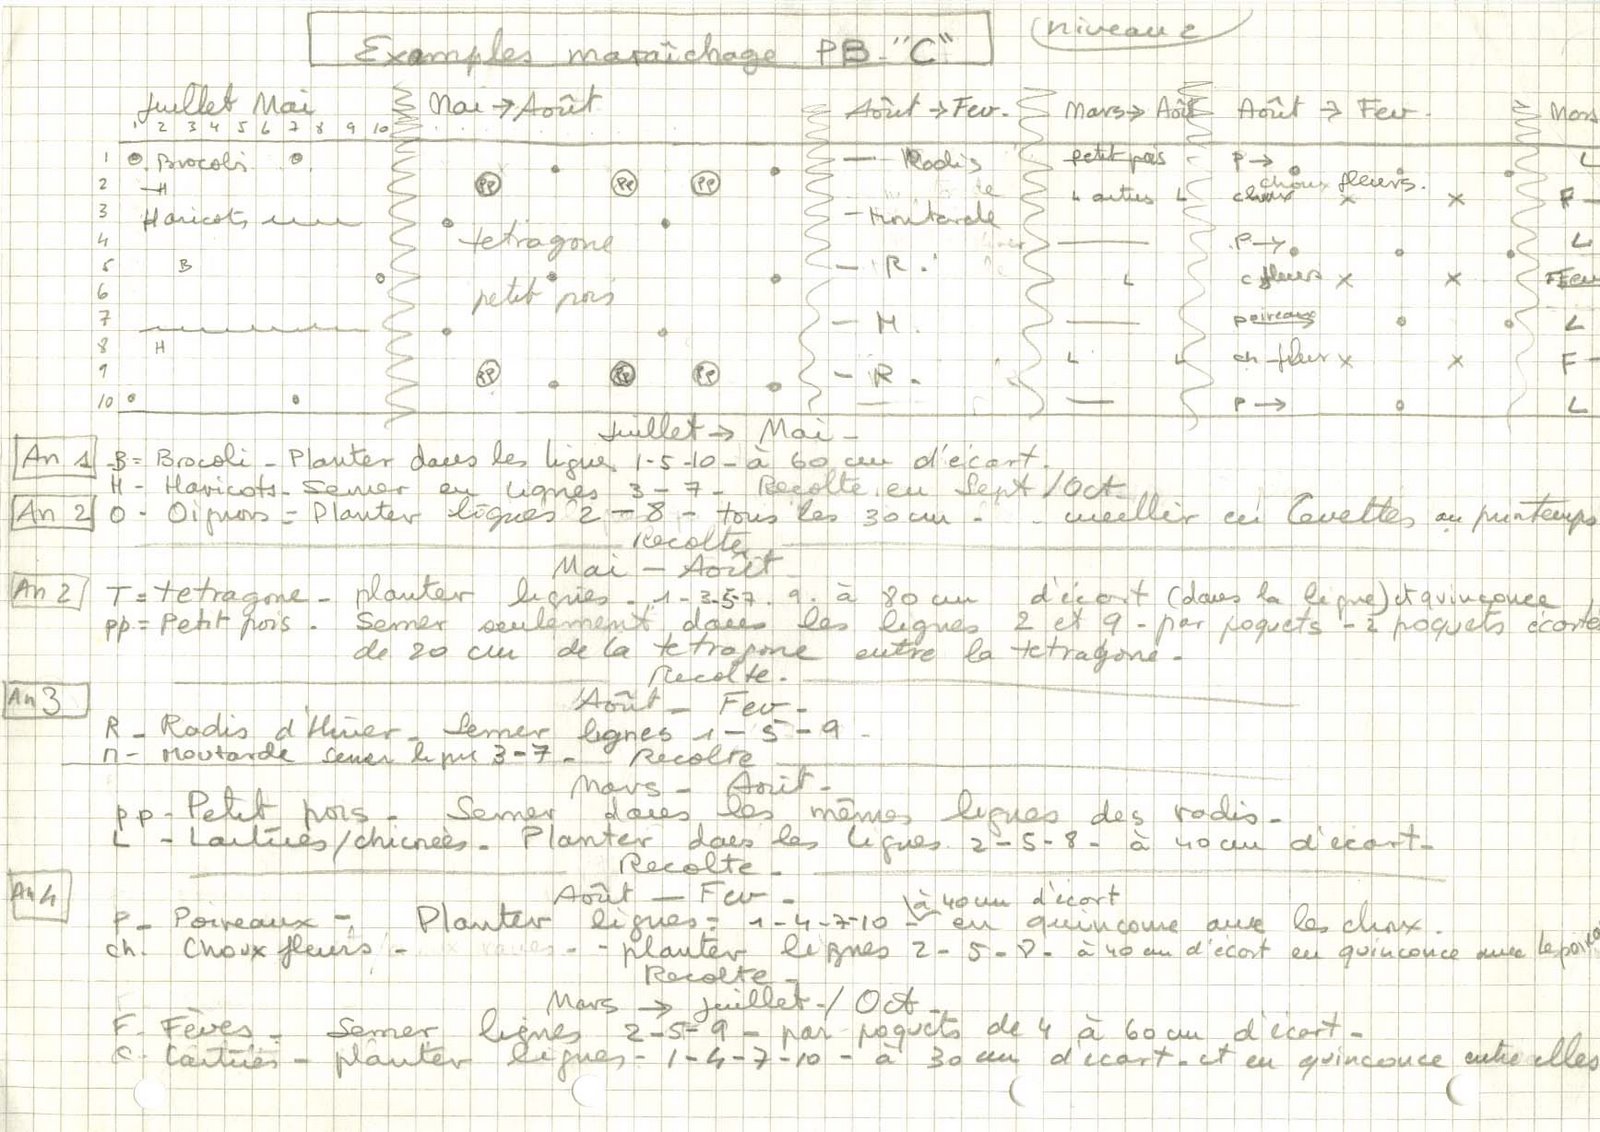 Examples maraîchage PB-"C"
(niveau 2
Juillet Mai
Mai → Août
Août → Fev.
Mars → Août
Août → Fev.
Mars
1 2 3 4 5 6 7 8 9 10
1 Brocoli
Radis
petit pois
P →
L
2 H
PP PP PP
choux fleurs.
L L
choux x x
F -
3 Haricots
Moutarde
4
tetragone
P →
L
5 B
R.
L
c fleurs x x
6
petit pois
7
M.
poireaux
L
8 H
L L
ch-fleur x x
F -
9
PP PP PP
R.
10
P →
L
Juillet → Mai -
An 1 B = Brocoli - Planter dans les lignes 1-5-10 - à 60 cm d'écart.
H - Haricots - Semer en lignes 3 - 7 - Recolte en Sept/Oct-
An 2 O - Oignons = Planter lignes 2 - 8 - tous les 30 cm - cueillir en Cevettes au printemps
Recolte
Mai - Août
An 2 T = tetragone - planter lignes - 1-3-5-7. 9. à 80 cm d'écart (dans la ligne) et quinconce
pp = Petit pois. Semer seulement dans les lignes 2 et 9 - par poquets - 2 poquets écartés
de 20 cm de la tetragone entre la tetragone -
Recolte.
An 3
Août - Fev -
R - Radis d'Hiver - Semer lignes 1 - 5 - 9 -
M - Moutarde semer ligne 3-7 - Recolte
Mars - Août -
pp - Petit pois - Semer dans les mêmes lignes des radis -
L - Laitues/chicorées - Planter dans les lignes 2-5-8 - à 40 cm d'écart -
Recolte -
An 4
Août - Fev -
à 40 cm d'écart
P - Poireaux - Planter lignes = 1-4-7-10 - en quinconce avec les choux.
ch. Choux fleurs - - planter lignes 2-5-8- à 40 cm d'écart en quinconce avec les
Recolte -
Mars → juillet-/Oct -
F - Fèves - Semer lignes 2-5-9 - par poquets de 4 à 60 cm d'écart -
C - Laitues - planter lignes - 1-4-7-10 - à 30 cm d'écart - et en quinconce entre elles